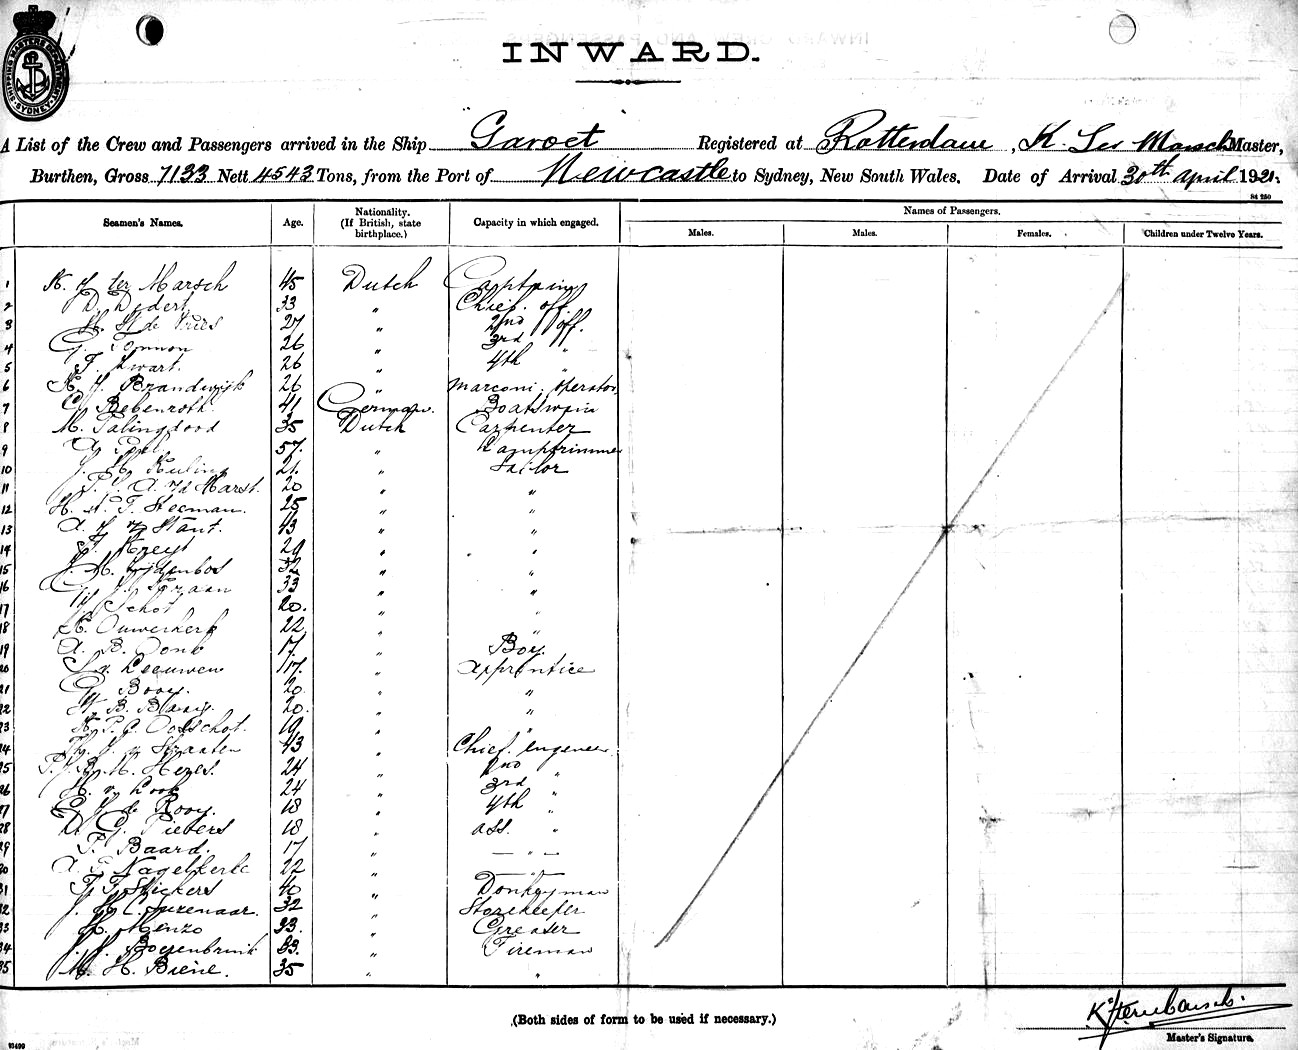 SHIPPING MASTERS DEPARTMENT SYDNEY
INWARD.
A List of the Crew and Passengers arrived in the Ship Garoet Registered at Rotterdam, K. Ter Marsch Master,
Burthen, Gross 7133 Nett 4543 Tons, from the Port of Newcastle to Sydney, New South Wales. Date of Arrival 30th April 1921.
S4 250
Seamen's Names. Age. Nationality. (If British, state birthplace.) Capacity in which engaged. Names of Passengers.
Males. Males. Females. Children under Twelve Years.
1 K. J. ter Marsch 45 Dutch Captain
2 D. Dedert 33 " Chief. off.
3 H. W de Vries 27 " 2nd off.
4 G. Tonnon 26 " 3rd "
5 T. Kwart. 26 " 4th "
6 K. J. Brandwijk 26 " Marconi. operator
7 G. Bebenroth. 41 German. Boatswain
8 M. Talingdood 35 Dutch Carpenter
9 A. 57. " Lamptrimmer
10 J. H. Kuling 21. " Sailor
11 P. J. A. v/d Marst. 20 " "
12 H. N. T. Steeman. 25 " "
13 A. J. v/d Stant. 43 " "
14 Kreyt 29 " "
15 J. M. Lijdenbos 32 " "
16 G. J. Kraan 33 " "
17 Schot 20. " "
18 K. Ouwerkerk 22 " "
19 A. B. Donk 17. " Boy.
20 S. v. Leeuwen 17. " apprentice
21 G. Booy. 20. " "
22 W. B. Blaay. 20. " "
23 K. P. C. Oosschot. 19 " "
24 J. v. Straaten 43 " Chief. engeneer.
25 P. J. M. Heres. 24 " 2nd "
26 H. v. Look 24 " 3rd "
27 G. J. de Rooy. 18 " 4th "
28 D. G. Pieters 18 " ass. "
29 P. Baard. 17 " — " —
30 A. T. Nagelkerke 22 " — " —
31 T. T. Stickers 40 " Donkeyman
32 J. H. C. Suzenaar. 32 " Storekeeper
33 H. Menzo 33. " Greaser
34 J. J. Boezenbrink 33. " Fireman
35 M. H. Biene. 35 " "
(Both sides of form to be used if necessary.)
K J ter Marsch.
Master's Signature.